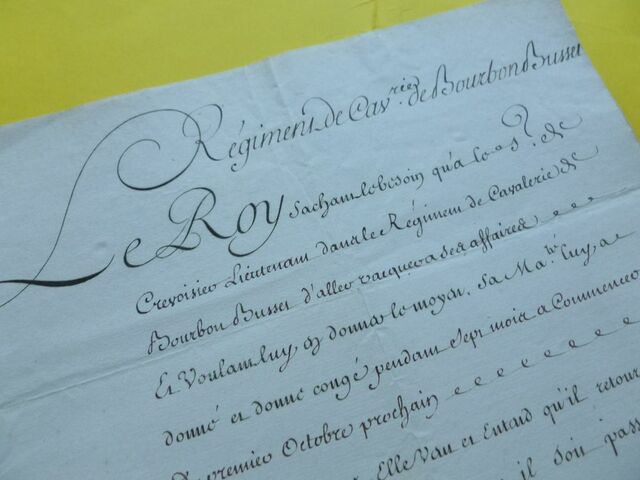 Régiment de Cav.rie de Bourbon Busset
Le Roy sachant le besoin qu'a le s.r de
Crevoisier Lieutenant dans le Régiment de Cavalerie de
Bourbon Busset d'aller vacquer a ses affaires
Et Voulant luy en donner le moyen. Sa Ma.té luy a
donné et donne congé pendant Sept mois a Commencer
Du premier Octobre prochain
Elle Veut et Entend qu'il retour
il soit pass